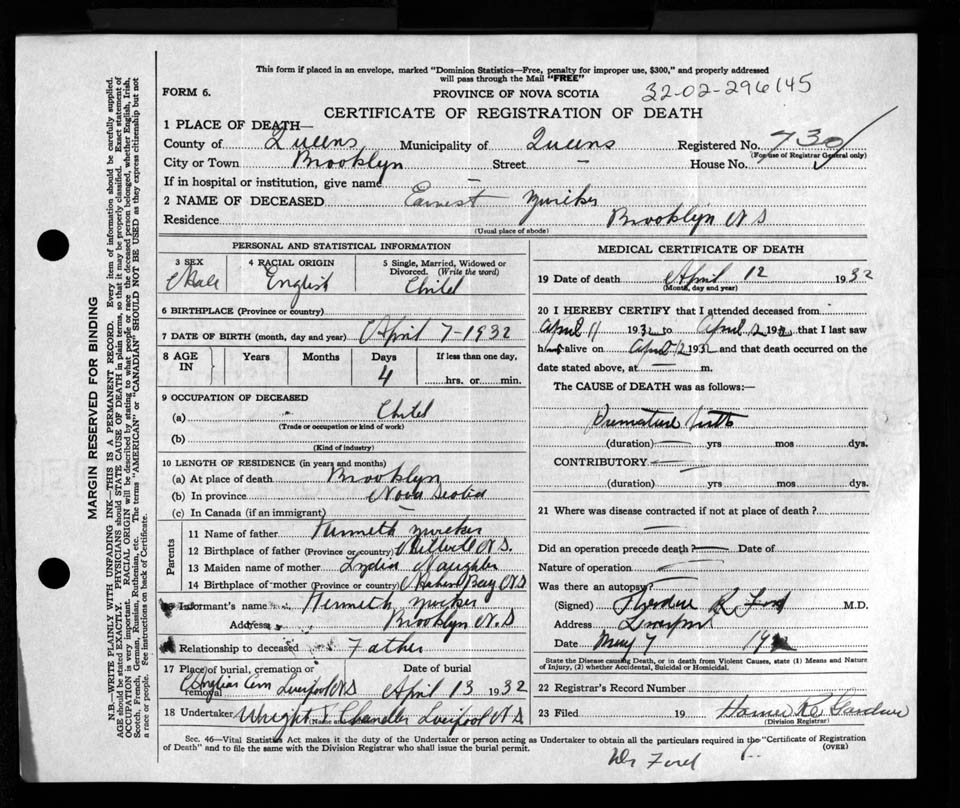 This form if placed in an envelope, marked "Dominion Statistics—Free, penalty for improper use, $300," and properly addressed
will pass through the Mail "FREE"
FORM 6.
PROVINCE OF NOVA SCOTIA
32-02-296145
CERTIFICATE OF REGISTRATION OF DEATH
1 PLACE OF DEATH—
County of Queens Municipality of Queens Registered No. 730
(For use of Registrar General only)
City or Town Brooklyn Street – House No.
If in hospital or institution, give name –
2 NAME OF DECEASED Earnest Zwicker
Residence Brooklyn N S
(Usual place of abode)
PERSONAL AND STATISTICAL INFORMATION
3 SEX
Male
4 RACIAL ORIGIN
English
5 Single, Married, Widowed or
Divorced. (Write the word)
Child
6 BIRTHPLACE (Province or country)
7 DATE OF BIRTH (month, day and year) April 7-1932
8 AGE IN Years Months Days If less than one day,
4 hrs. or min.
9 OCCUPATION OF DECEASED
(a) Child
(Trade or occupation or kind of work)
(b)
(Kind of industry)
10 LENGTH OF RESIDENCE (in years and months)
(a) At place of death Brooklyn
(b) In province Nova Scotia
(c) In Canada (if an immigrant) –
Parents
11 Name of father Kenneth Zwicker
12 Birthplace of father (Province or country) N.S.
13 Maiden name of mother Lydia Naugler
14 Birthplace of mother (Province or country) Bay N.S
Informant's name Kenneth Zwicker
Address Brooklyn N.S
Relationship to deceased Father
17 Place of burial, cremation or removal Date of burial
Cem Liverpool N.S April 13 1932
18 Undertaker Wright & Chandler Liverpool N.S
MEDICAL CERTIFICATE OF DEATH
19 Date of death April 12 1932
(Month, day and year)
20 I HEREBY CERTIFY that I attended deceased from
April 11 1932 to April 12 1932 that I last saw
him alive on April 12 1932 and that death occurred on the
date stated above, at — m.
The CAUSE of DEATH was as follows:—
Premature birth
(duration) — yrs mos dys.
CONTRIBUTORY —
(duration) — yrs mos dys.
21 Where was disease contracted if not at place of death?
—
Did an operation precede death? — Date of
Nature of operation —
Was there an autopsy? —
(Signed) Theodore R Ford M.D.
Address Liverpool
Date May 7 1932
State the Disease causing Death, or in death from Violent Causes, state (1) Means and Nature
of Injury, (2) whether Accidental, Suicidal or Homicidal.
22 Registrar's Record Number
23 Filed 19 Gardner
(Division Registrar)
Sec. 46—Vital Statistics Act makes it the duty of the Undertaker or person acting as Undertaker to obtain all the particulars required in the "Certificate of Registration
of Death" and to file the same with the Division Registrar who shall issue the burial permit.
(OVER)
Dr Ford
MARGIN RESERVED FOR BINDING
N.B.—WRITE PLAINLY WITH UNFADING INK—THIS IS A PERMANENT RECORD. Every item of information should be carefully supplied.
AGE should be stated EXACTLY. PHYSICIANS should STATE CAUSE OF DEATH in plain terms, so that it may be properly classified. Exact statement of
OCCUPATION is very important. RACIAL ORIGIN will be described by stating to what people or race the deceased person belonged, whether English, Irish,
Scotch, French, German, Russian, Ruthenian, etc. The terms "AMERICAN" or "CANADIAN" SHOULD NOT BE USED as they express citizenship but not
a race or people. See instructions on back of Certificate.